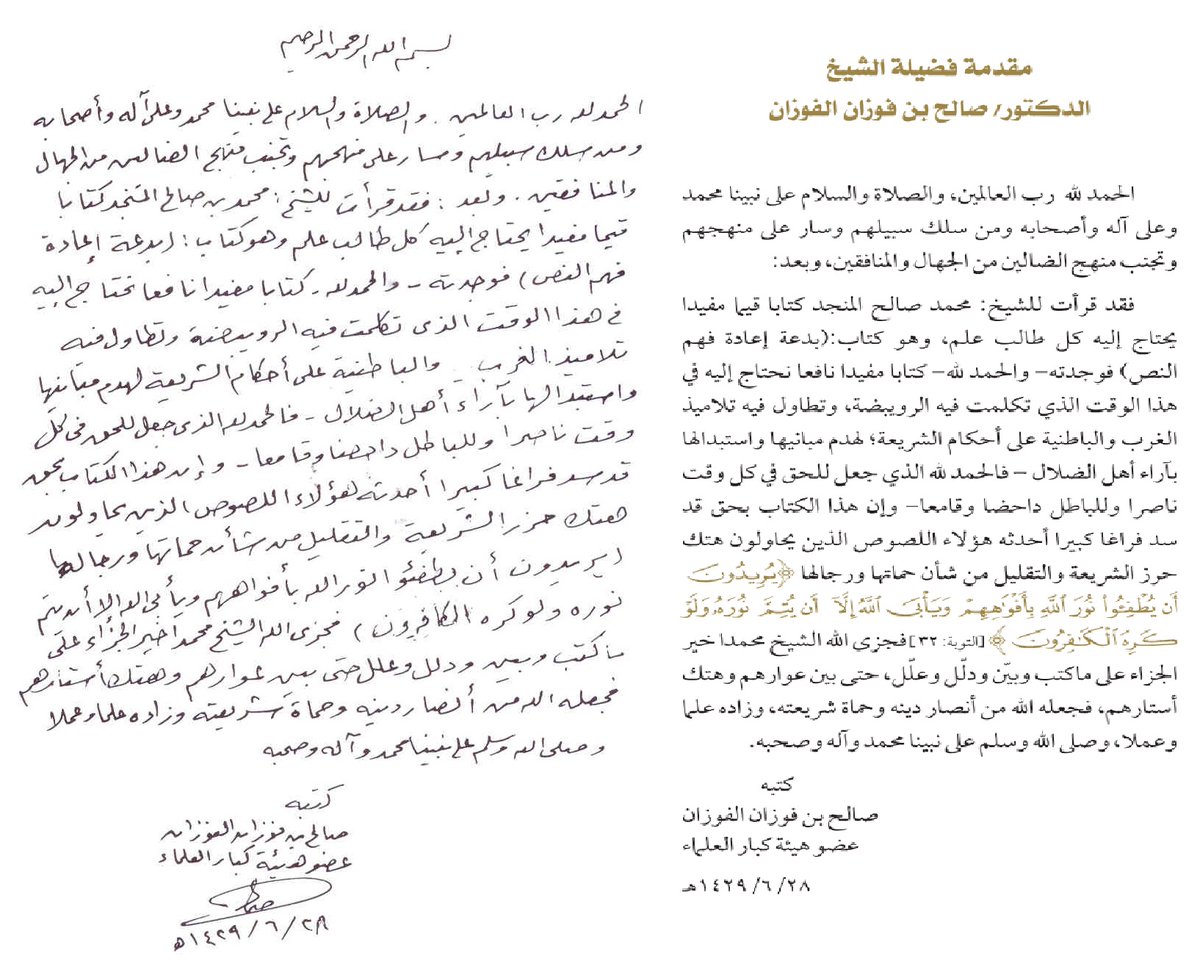 مقدمة فضيلة الشيخ
الدكتور/ صالح بن فوزان الفوزان
الحمد لله رب العالمين، والصلاة والسلام على نبينا محمد
وعلى آله وأصحابه ومن سلك سبيلهم وسار على منهجهم
وتجنب منهج الضالين من الجهال والمنافقين، وبعد:
فقد قرأت للشيخ: محمد صالح المنجد كتابا قيما مفيدا
يحتاج إليه كل طالب علم، وهو كتاب:(بدعة إعادة فهم
النص) فوجدته- والحمد لله- كتابا مفيدا نافعا نحتاج إليه في
هذا الوقت الذي تكلمت فيه الرويبضة، وتطاول فيه تلاميذ
الغرب والباطنية على أحكام الشريعة؛ لهدم مبانيها واستبدالها
بآراء أهل الضلال – فالحمد لله الذي جعل للحق في كل وقت
ناصرا وللباطل داحضا وقامعا- وإن هذا الكتاب بحق قد
سد فراغا كبيرا أحدثه هؤلاء اللصوص الذين يحاولون هتك
حرز الشريعة والتقليل من شأن حماتها ورجالها ﴿يُرِيدُونَ
أَن يُطْفِـُٔوا۟ نُورَ ٱللَّهِ بِأَفْوَٰهِهِمْ وَيَأْبَى ٱللَّهُ إِلَّآ أَن يُتِمَّ نُورَهُۥ وَلَوْ
كَرِهَ ٱلْكَٰفِرُونَ﴾ [التوبة: ٣٢] فجزى الله الشيخ محمدا خير
الجزاء على ماكتب وبيّن ودلّل وعلّل، حتى بين عوارهم وهتك
أستارهم، فجعله الله من أنصار دينه وحماة شريعته، وزاده علما
وعملا، وصلى الله وسلم على نبينا محمد وآله وصحبه.
كتبه
صالح بن فوزان الفوزان
عضو هيئة كبار العلماء
١٤٢٩/٦/٢٨هـ
بسم الله الرحمن الرحيم
الحمد لله رب العالمين. والصلاة والسلام على نبينا محمد وعلى آله وأصحابه
ومن سلك سبيلهم وسار على منهجهم وتجنب منهج الضالين من الجهال
والمنافقين. وبعد: فقد قرأت للشيخ: محمد بن صالح المنجد كتابا
قيما مفيدا يحتاج إليه كل طالب علم وهو كتاب: (بدعة إعادة
فهم النص) فوجدته - والحمد لله - كتابا مفيدا نافعا نحتاج إليه
في هذا الوقت الذي تكلمت فيه الرويبضة وتطاول فيه
تلاميذ الغرب والباطنية على أحكام الشريعة لهدم مبانيها
واستبدالها بآراء أهل الضلال - فالحمد لله الذي جعل للحق في كل
وقت ناصرا وللباطل داحضا وقامعا - وإن هذا الكتاب بحق
قد سد فراغا كبيرا أحدثه هؤلاء اللصوص الذين يحاولون
هتك حرز الشريعة والتقليل من شأن حماتها ورجالها
(يريدون أن يطفئوا نور الله بأفواههم ويأبى الله إلا أن يتم
نوره ولو كره الكافرون) فجزى الله الشيخ محمدا خير الجزاء على
ما كتب وبين ودلل وعلل حتى بين عوارهم وهتك أستارهم
فجعله الله من أنصار دينه وحماة شريعته وزاده علما وعملا
وصلى الله وسلم على نبينا محمد وآله وصحبه
كتبه
صالح بن فوزان الفوزان
عضو هيئة كبار العلماء
١٤٢٩/٦/٢٨هـ